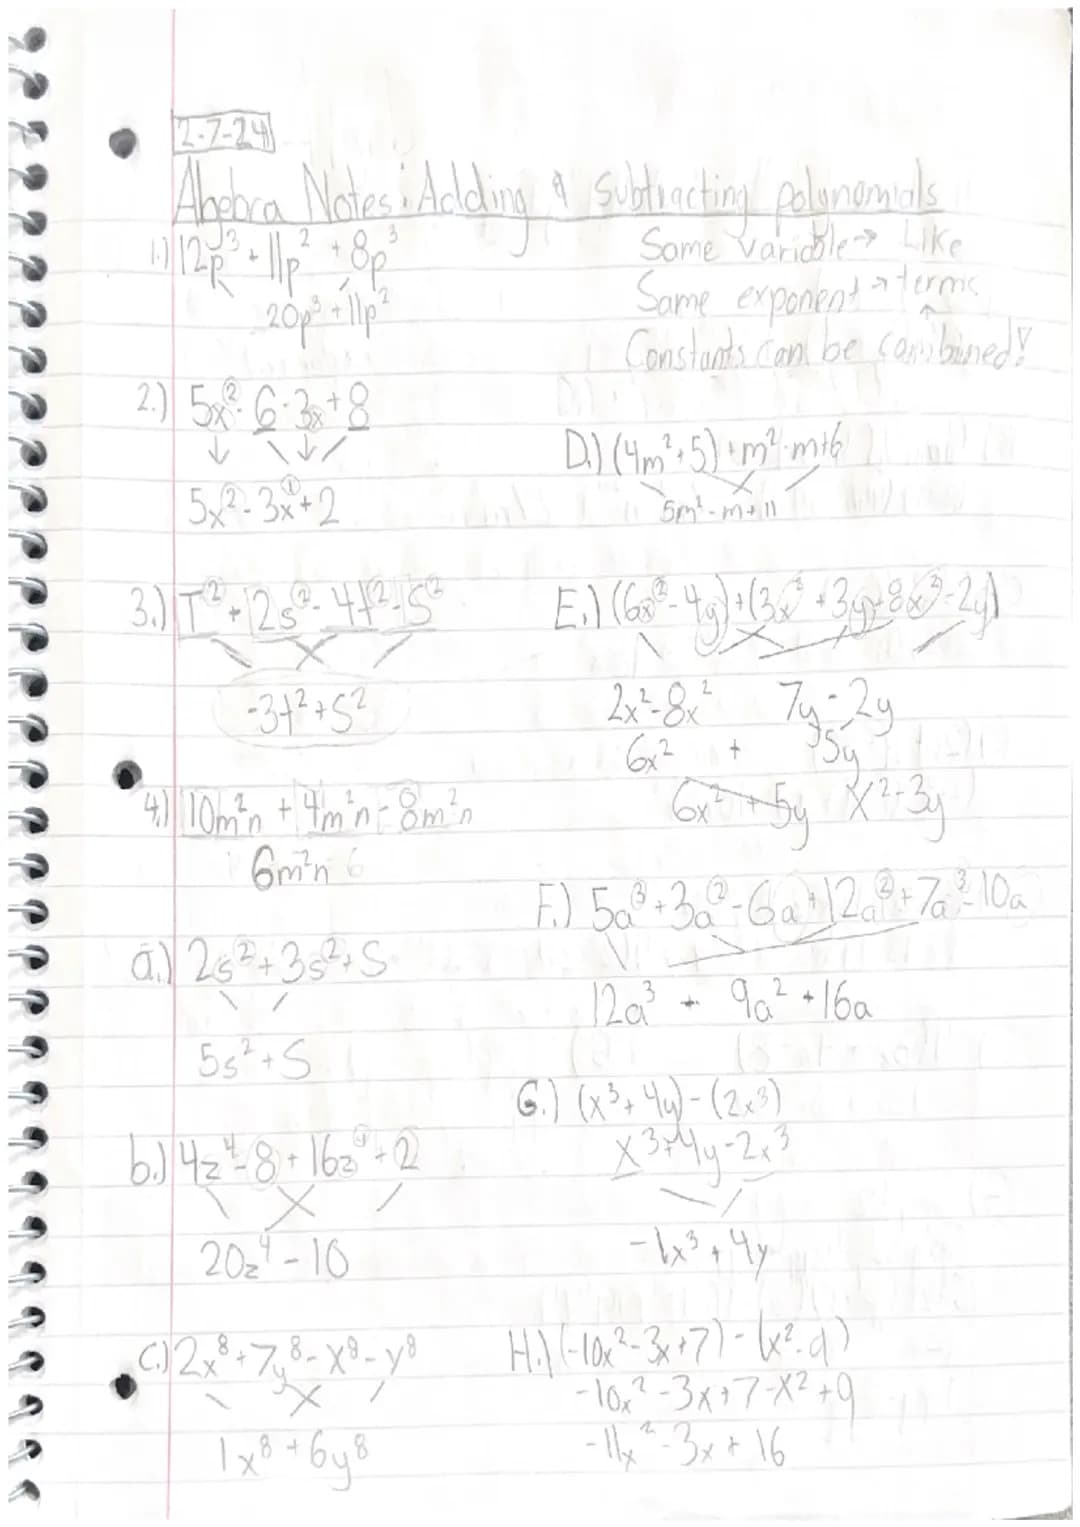 2-7-24
Algebra Notes: Adding & Subtracting polynomials
1.) 12p³ + 11p² + 8p³
20p³ + 11p²
Same variable → Like
Same exponent → terms
Constants can be combined!
2.) 5x² - 6 - 3x + 8
5x² - 3x① + 2
3.) T² + 2s² - 4t² - s²
-3t² + s²
4.) 10m²n + 4m²n - 8m²n
6m²n
a.) 2s² + 3s² + s
5s² + s
b.) 4z⁴ - 8 + 16z④ + 2
20z⁴ - 10
c.) 2x⁸ + 7y⁸ - x⁸ - y⁸
1x⁸ + 6y⁸
D.) (4m² + 5) + m² - m + 6
5m² - m + 11
E.) (6x² - 4y) + (3x² + 3y - 8x² - 2y)
2x² - 8x² 7y - 2y
6x² + 5y
6x² + 5y x² - 3y
F.) 5a³ + 3a² - 6a + 12a² + 7a³ - 10a
12a³ + 9a² + 16a
G.) (x³ + 4y) - (2x³)
x³ + 4y - 2x³
-1x³ + 4y
H.) (-10x² - 3x + 7) - (x² - 9)
-10x² - 3x + 7 - x² + 9
-11x² - 3x + 16